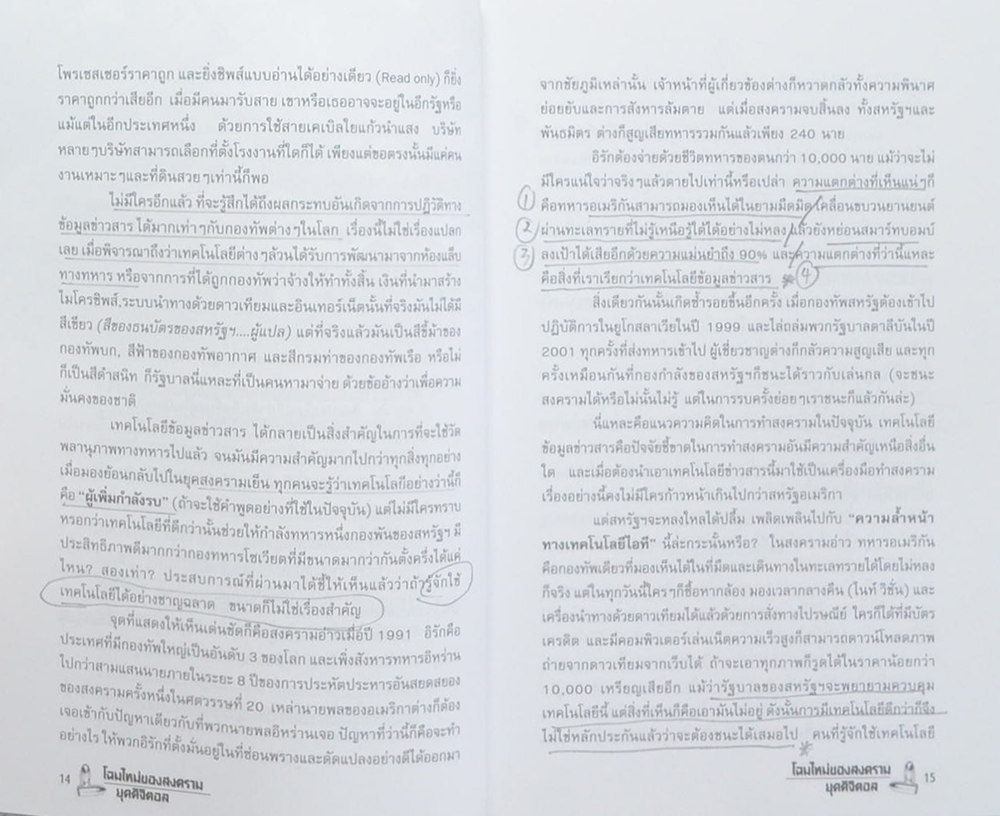 โพรเซสเซอร์ราคาถูก และยิ่งชิพส์แบบอ่านได้อย่างเดียว (Read only) ก็ยิ่ง
ราคาถูกกว่าเสียอีก เมื่อมีคนมารับสาย เขาหรือเธออาจจะอยู่ในอีกรัฐหรือ
แม้แต่ในอีกประเทศหนึ่ง ด้วยการใช้สายเคเบิลใยแก้วนำแสง บริษัท
หลายๆบริษัทสามารถเลือกที่ตั้งโรงงานที่ใดก็ได้ เพียงแต่ขอตรงนั้นมีแค่คน
งานเหมาะๆและที่ดินสวยๆเท่านี้ก็พอ
ไม่มีใครอีกแล้ว ที่จะรู้สึกได้ถึงผลกระทบอันเกิดจากการปฏิวัติทาง
ข้อมูลข่าวสาร ได้มากเท่าๆกับกองทัพต่างๆในโลก เรื่องนี้ไม่ใช่เรื่องแปลก
เลย เมื่อพิจารณาถึงว่าเทคโนโลยีต่างๆล้วนได้รับการพัฒนามาจากห้องแล็บ
ทางทหาร หรือจากการที่ได้ถูกกองทัพว่าจ้างให้ทำทั้งสิ้น เงินที่นำมาสร้าง
ไมโครชิพส์,ระบบนำทางด้วยดาวเทียมและอินเทอร์เน็ตนั้นที่จริงมันไม่ได้มี
สีเขียว (สีของธนบัตรของสหรัฐฯ....ผู้แปล) แต่ที่จริงแล้วมันเป็นสีขี้ม้าของ
กองทัพบก, สีฟ้าของกองทัพอากาศ และสีกรมท่าของกองทัพเรือ หรือไม่
ก็เป็นสีดำสนิท ก็รัฐบาลนี่แหละที่เป็นคนหามาจ่าย ด้วยข้ออ้างว่าเพื่อความ
มั่นคงของชาติ
เทคโนโลยีข้อมูลข่าวสาร ได้กลายเป็นสิ่งสำคัญในการที่จะใช้วัด
พลานุภาพทางทหารไปแล้ว จนมันมีความสำคัญมากไปกว่าทุกสิ่งทุกอย่าง
เมื่อมองย้อนกลับไปในยุคสงครามเย็น ทุกคนจะรู้ว่าเทคโนโลยีอย่างว่านี้ก็
คือ “ผู้เพิ่มกำลังรบ” (ถ้าจะใช้คำพูดอย่างที่ใช้ในปัจจุบัน) แต่ไม่มีใครทราบ
หรอกว่าเทคโนโลยีที่ดีกว่านั้นช่วยให้กำลังทหารหนึ่งกองพันของสหรัฐฯ มี
ประสิทธิภาพดีมากกว่ากองทหารโซเวียตที่มีขนาดมากกว่ากันตั้งครึ่งได้แค่
ไหน? สองเท่า? ประสบการณ์ที่ผ่านมาได้ชี้ให้เห็นแล้วว่าถ้ารู้จักใช้
เทคโนโลยีได้อย่างชาญฉลาด ขนาดก็ไม่ใช่เรื่องสำคัญ
จุดที่แสดงให้เห็นเด่นชัดก็คือสงครามอ่าวเมื่อปี 1991 อิรักคือ
ประเทศที่มีกองทัพใหญ่เป็นอันดับ 3 ของโลก และเพิ่งสังหารทหารอิหร่าน
ไปกว่าสามแสนนายภายในระยะ 8 ปีของการประหัตประหารอันสยดสยอง
ของสงครามครั้งหนึ่งในศตวรรษที่ 20 เหล่านายพลของอเมริกาต่างก็ต้อง
เจอเข้ากับปัญหาเดียวกับที่พวกนายพลอิหร่านเจอ ปัญหาที่ว่านี้ก็คือจะทำ
อย่างไร ให้พวกอิรักที่ตั้งมั่นอยู่ในที่ซ่อนพรางและดัดแปลงอย่างดีได้ออกมา
14 โฉมใหม่ของสงคราม
ยุคดิจิตอล
จากชัยภูมิเหล่านั้น เจ้าหน้าที่ผู้เกี่ยวข้องต่างก็หวาดกลัวทั้งความพินาศ
ย่อยยับและการสังหารล้มตาย แต่เมื่อสงครามจบสิ้นลง ทั้งสหรัฐฯและ
พันธมิตร ต่างก็สูญเสียทหารรวมกันแล้วเพียง 240 นาย
อิรักต้องจ่ายด้วยชีวิตทหารของตนกว่า 10,000 นาย แม้ว่าจะไม่
มีใครแน่ใจว่าจริงๆแล้วตายไปเท่านี้หรือเปล่า ความแตกต่างที่เห็นแน่ๆก็
① คือทหารอเมริกันสามารถมองเห็นได้ในยามมืดมิด เคลื่อนขบวนยานยนต์
② ผ่านทะเลทรายที่ไม่รู้เหนือรู้ใต้ได้อย่างไม่หลง แล้วยังหย่อนสมาร์ทบอมบ์
③ ลงเป้าได้เสียอีกด้วยความแม่นยำถึง 90% และความแตกต่างที่ว่านี้แหละ
คือสิ่งที่เราเรียกว่าเทคโนโลยีข้อมูลข่าวสาร * ④
สิ่งเดียวกันนั้นเกิดซ้ำรอยขึ้นอีกครั้ง เมื่อกองทัพสหรัฐต้องเข้าไป
ปฏิบัติการในยูโกสลาเวียในปี 1999 และไล่ถล่มพวกรัฐบาลตาลีบันในปี
2001 ทุกครั้งที่ส่งทหารเข้าไป ผู้เชี่ยวชาญต่างก็กลัวความสูญเสีย และทุก
ครั้งเหมือนกันที่กองกำลังของสหรัฐฯก็ชนะได้ราวกับเล่นกล (จะชนะ
สงครามได้หรือไม่นั้นไม่รู้ แต่ในการรบครั้งย่อยๆเราชนะก็แล้วกันล่ะ)
นี่แหละคือแนวความคิดในการทำสงครามในปัจจุบัน เทคโนโลยี
ข้อมูลข่าวสารคือปัจจัยชี้ขาดในการทำสงครามอันมีความสำคัญเหนือสิ่งอื่น
ใด และเมื่อต้องนำเอาเทคโนโลยีข่าวสารนี้มาใช้เป็นเครื่องมือทำสงคราม
เรื่องอย่างนี้คงไม่มีใครก้าวหน้าเกินไปกว่าสหรัฐอเมริกา
แต่สหรัฐฯจะหลงใหลได้ปลื้ม เพลิดเพลินไปกับ “ความล้ำหน้า
ทางเทคโนโลยีไอที” นี้ล่ะกระนั้นหรือ? ในสงครามอ่าว ทหารอเมริกัน
คือกองทัพเดียวที่มองเห็นได้ในที่มืดและเดินทางในทะเลทรายได้โดยไม่หลง
ก็จริง แต่ในทุกวันนี้ใครๆก็ซื้อหากล้อง มองเวลากลางคืน (ไนท์ วิชั่น) และ
เครื่องนำทางด้วยดาวเทียมได้แล้วด้วยการสั่งทางไปรษณีย์ ใครก็ได้ที่มีบัตร
เครดิต และมีคอมพิวเตอร์เล่นเน็ตความเร็วสูงก็สามารถดาวน์โหลดภาพ
ถ่ายจากดาวเทียมจากเว็บได้ ถ้าจะเอาทุกภาพก็รูดได้ในราคาน้อยกว่า
10,000 เหรียญเสียอีก แม้ว่ารัฐบาลของสหรัฐฯจะพยายามควบคุม
เทคโนโลยีนี้ แต่สิ่งที่เห็นก็คือเอามันไม่อยู่ ดังนั้นการมีเทคโนโลยีดีกว่าก็จึง
ไม่ใช่หลักประกันแล้วว่าจะต้องชนะได้เสมอไป * คนที่รู้จักใช้เทคโนโลยี
โฉมใหม่ของสงคราม 15
ยุคดิจิตอล